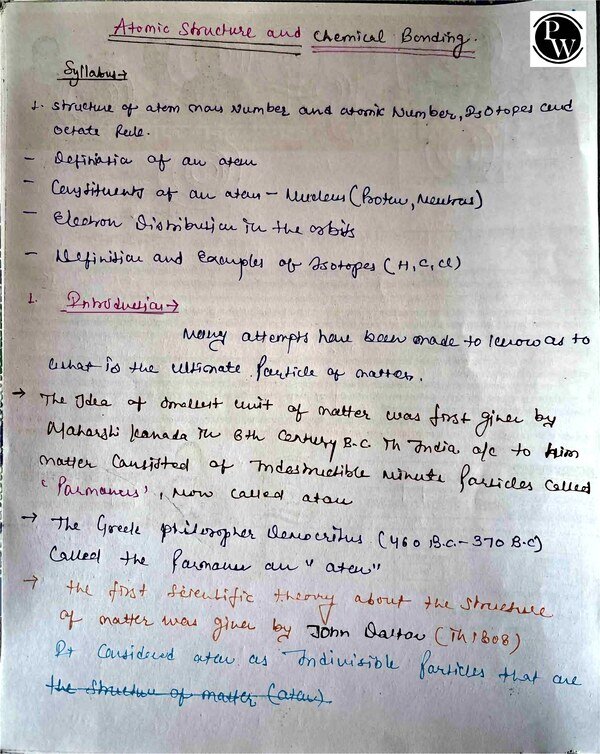 Atomic Structure and Chemical Bonding.
PW
Syllabus→
1. Structure of atom mass Number and atomic Number, Isotopes and
octate Rule.
- Defination of an atom
- Constituents of an atom - Nucleus (Proton, Neutrons)
- Electron Distribution in the orbits
- Definition and Examples of Isotopes (H, C, Cl)
1. Introduction→
Many attempts have been made to know as to
what is the ultimate Particle of matter.
→ The Idea of smallest unit of matter was first given by
Maharshi Kanada in 6th Century B.C in India a/c to him
matter consisted of Indestructible minute Particles called
'Parmanus', now called atom
→ The Greek philosopher Democritus (460 B.C-370 B.C)
called the Parmanu an "atom"
→ the first scientific theory about the structure
of matter was given by John Dalton (In 1808)
It Considered atom as Indivisible Particles that are
the structure of matter (atom)